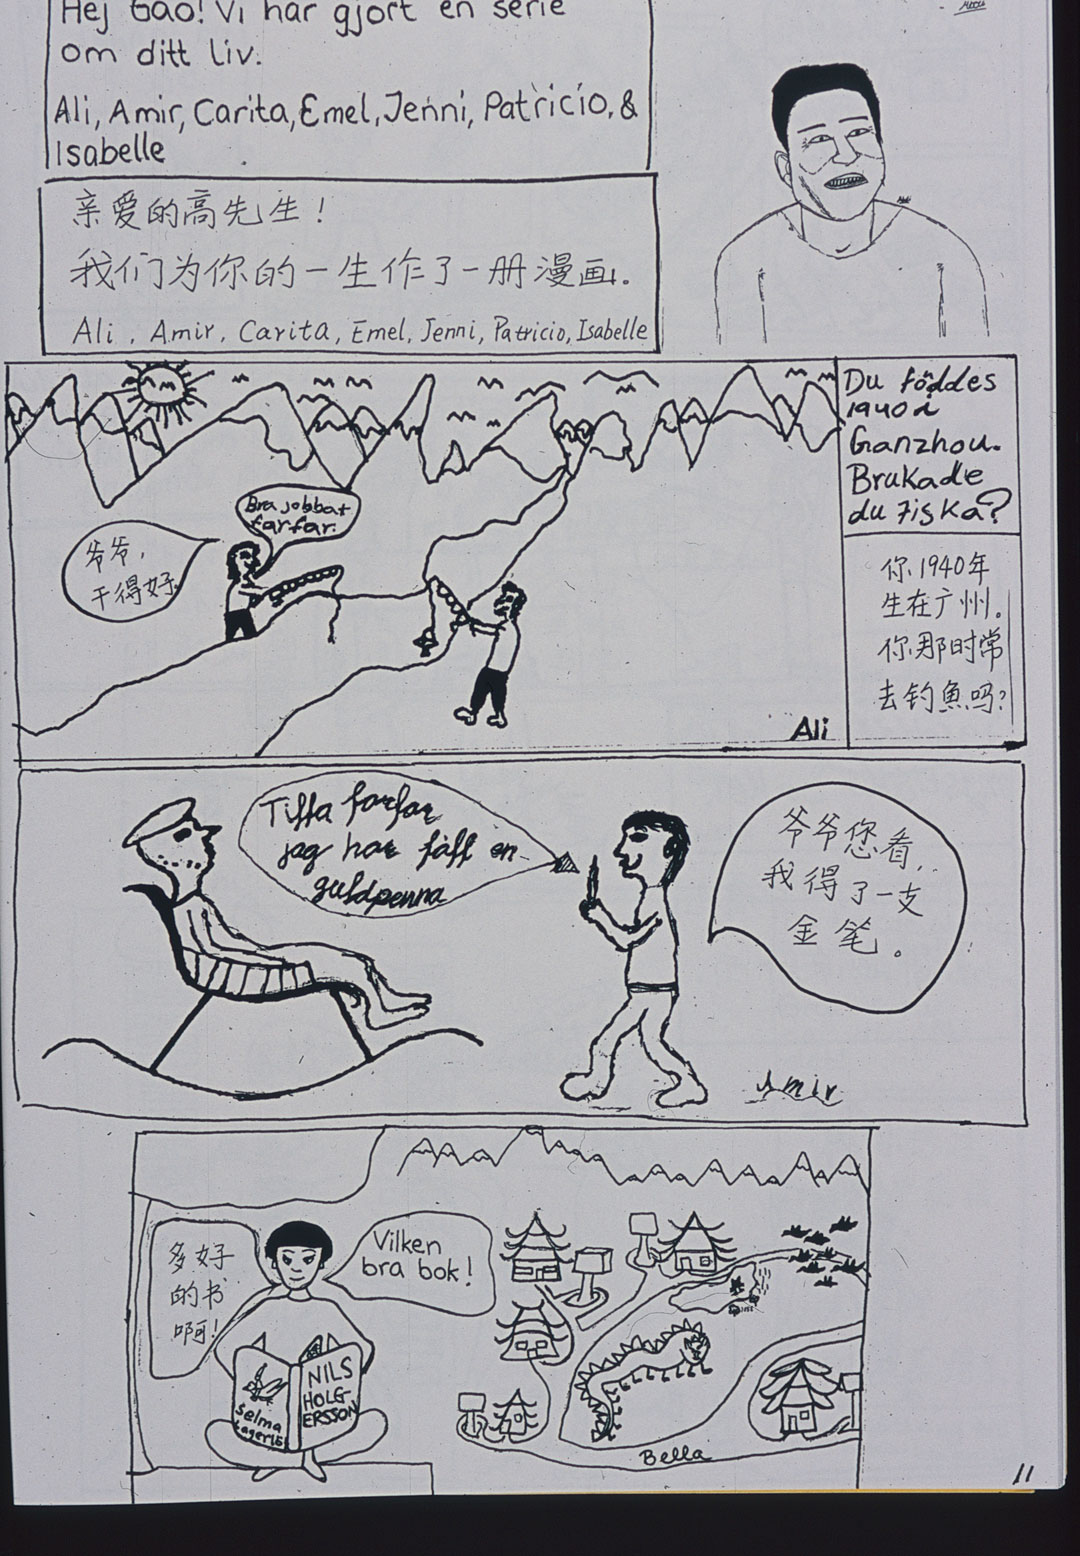 Hej Gao! Vi har gjort en serie
om ditt liv.
Ali, Amir, Carita, Emel, Jenni, Patricio, &
Isabelle
亲爱的高先生！
我们为你的一生作了一册漫画.
Ali, Amir, Carita, Emel, Jenni, Patricio, Isabelle
Du föddes
1940 i
Ganzhou.
Brukade
du fiska?
你 1940年
生在广州。
你那时常
去钓魚吗?
Bra jobbat
farfar.
爷爷,
干得好
Ali
Titta farfar
jag har fått en
guldpenna
爷爷您看,
我得了一支
金笔。
Amir
多好
的书
啊!
Vilken
bra bok!
Selma
Lagerlö
NILS
HOLG-
ERSSON
Bella
11